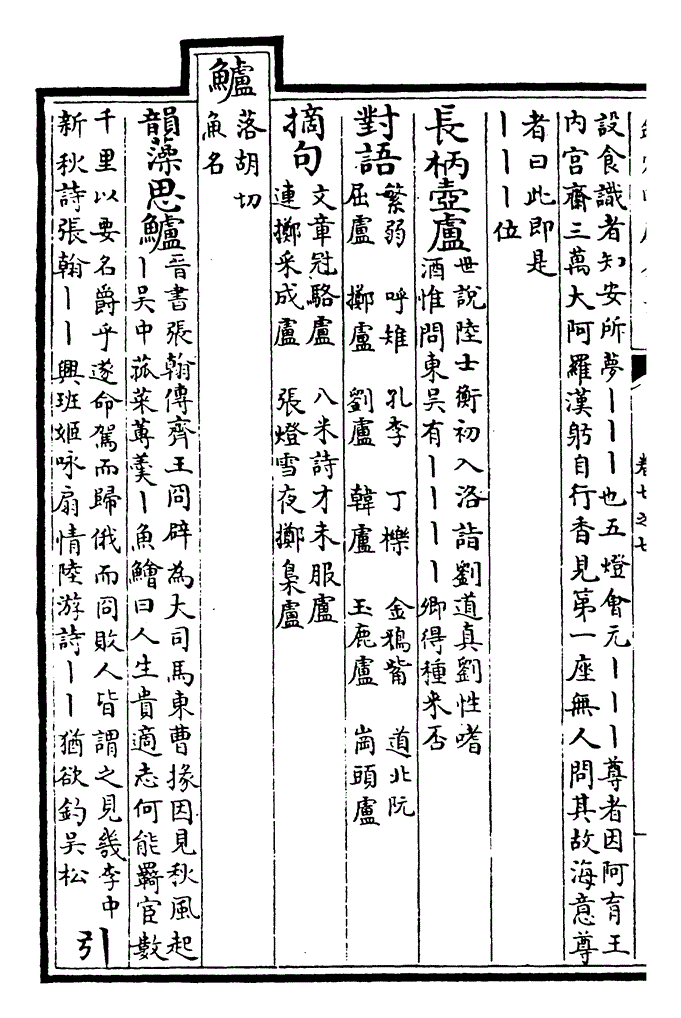 卷七之七
設食識者知安所夢丨丨丨也五燈會元丨丨丨尊者因阿育王
内宫齋三萬大阿羅漢躬自行香見第一座無人問其故海意尊
者曰此即是
丨丨丨位
長柄壺盧
世說陸士衡初入洛詣劉道真劉性嗜
酒惟問東吳有丨丨丨丨卿得種來否
對語
繁弱　呼雉　孔李　丁櫟　金鵶觜　道北阮
屈盧　擲盧　劉盧　韓盧　玉鹿盧　崗頭盧
摘句
文章冠駱盧　八米詩才未服盧
連擲采成盧　張燈雪夜擲梟盧
鱸
落胡切
魚名
韻藻思鱸
晉書張翰傳齊王冏辟為大司馬東曹掾因見秋風起
丨吳中菰菜蓴羮丨魚鱠曰人生貴適志何能羇宦數
千里以要名爵乎遂命駕而歸俄而冏敗人皆謂之見幾李中
新秋詩張翰丨丨興班姬咏扇情陸游詩丨丨猶欲釣吳松